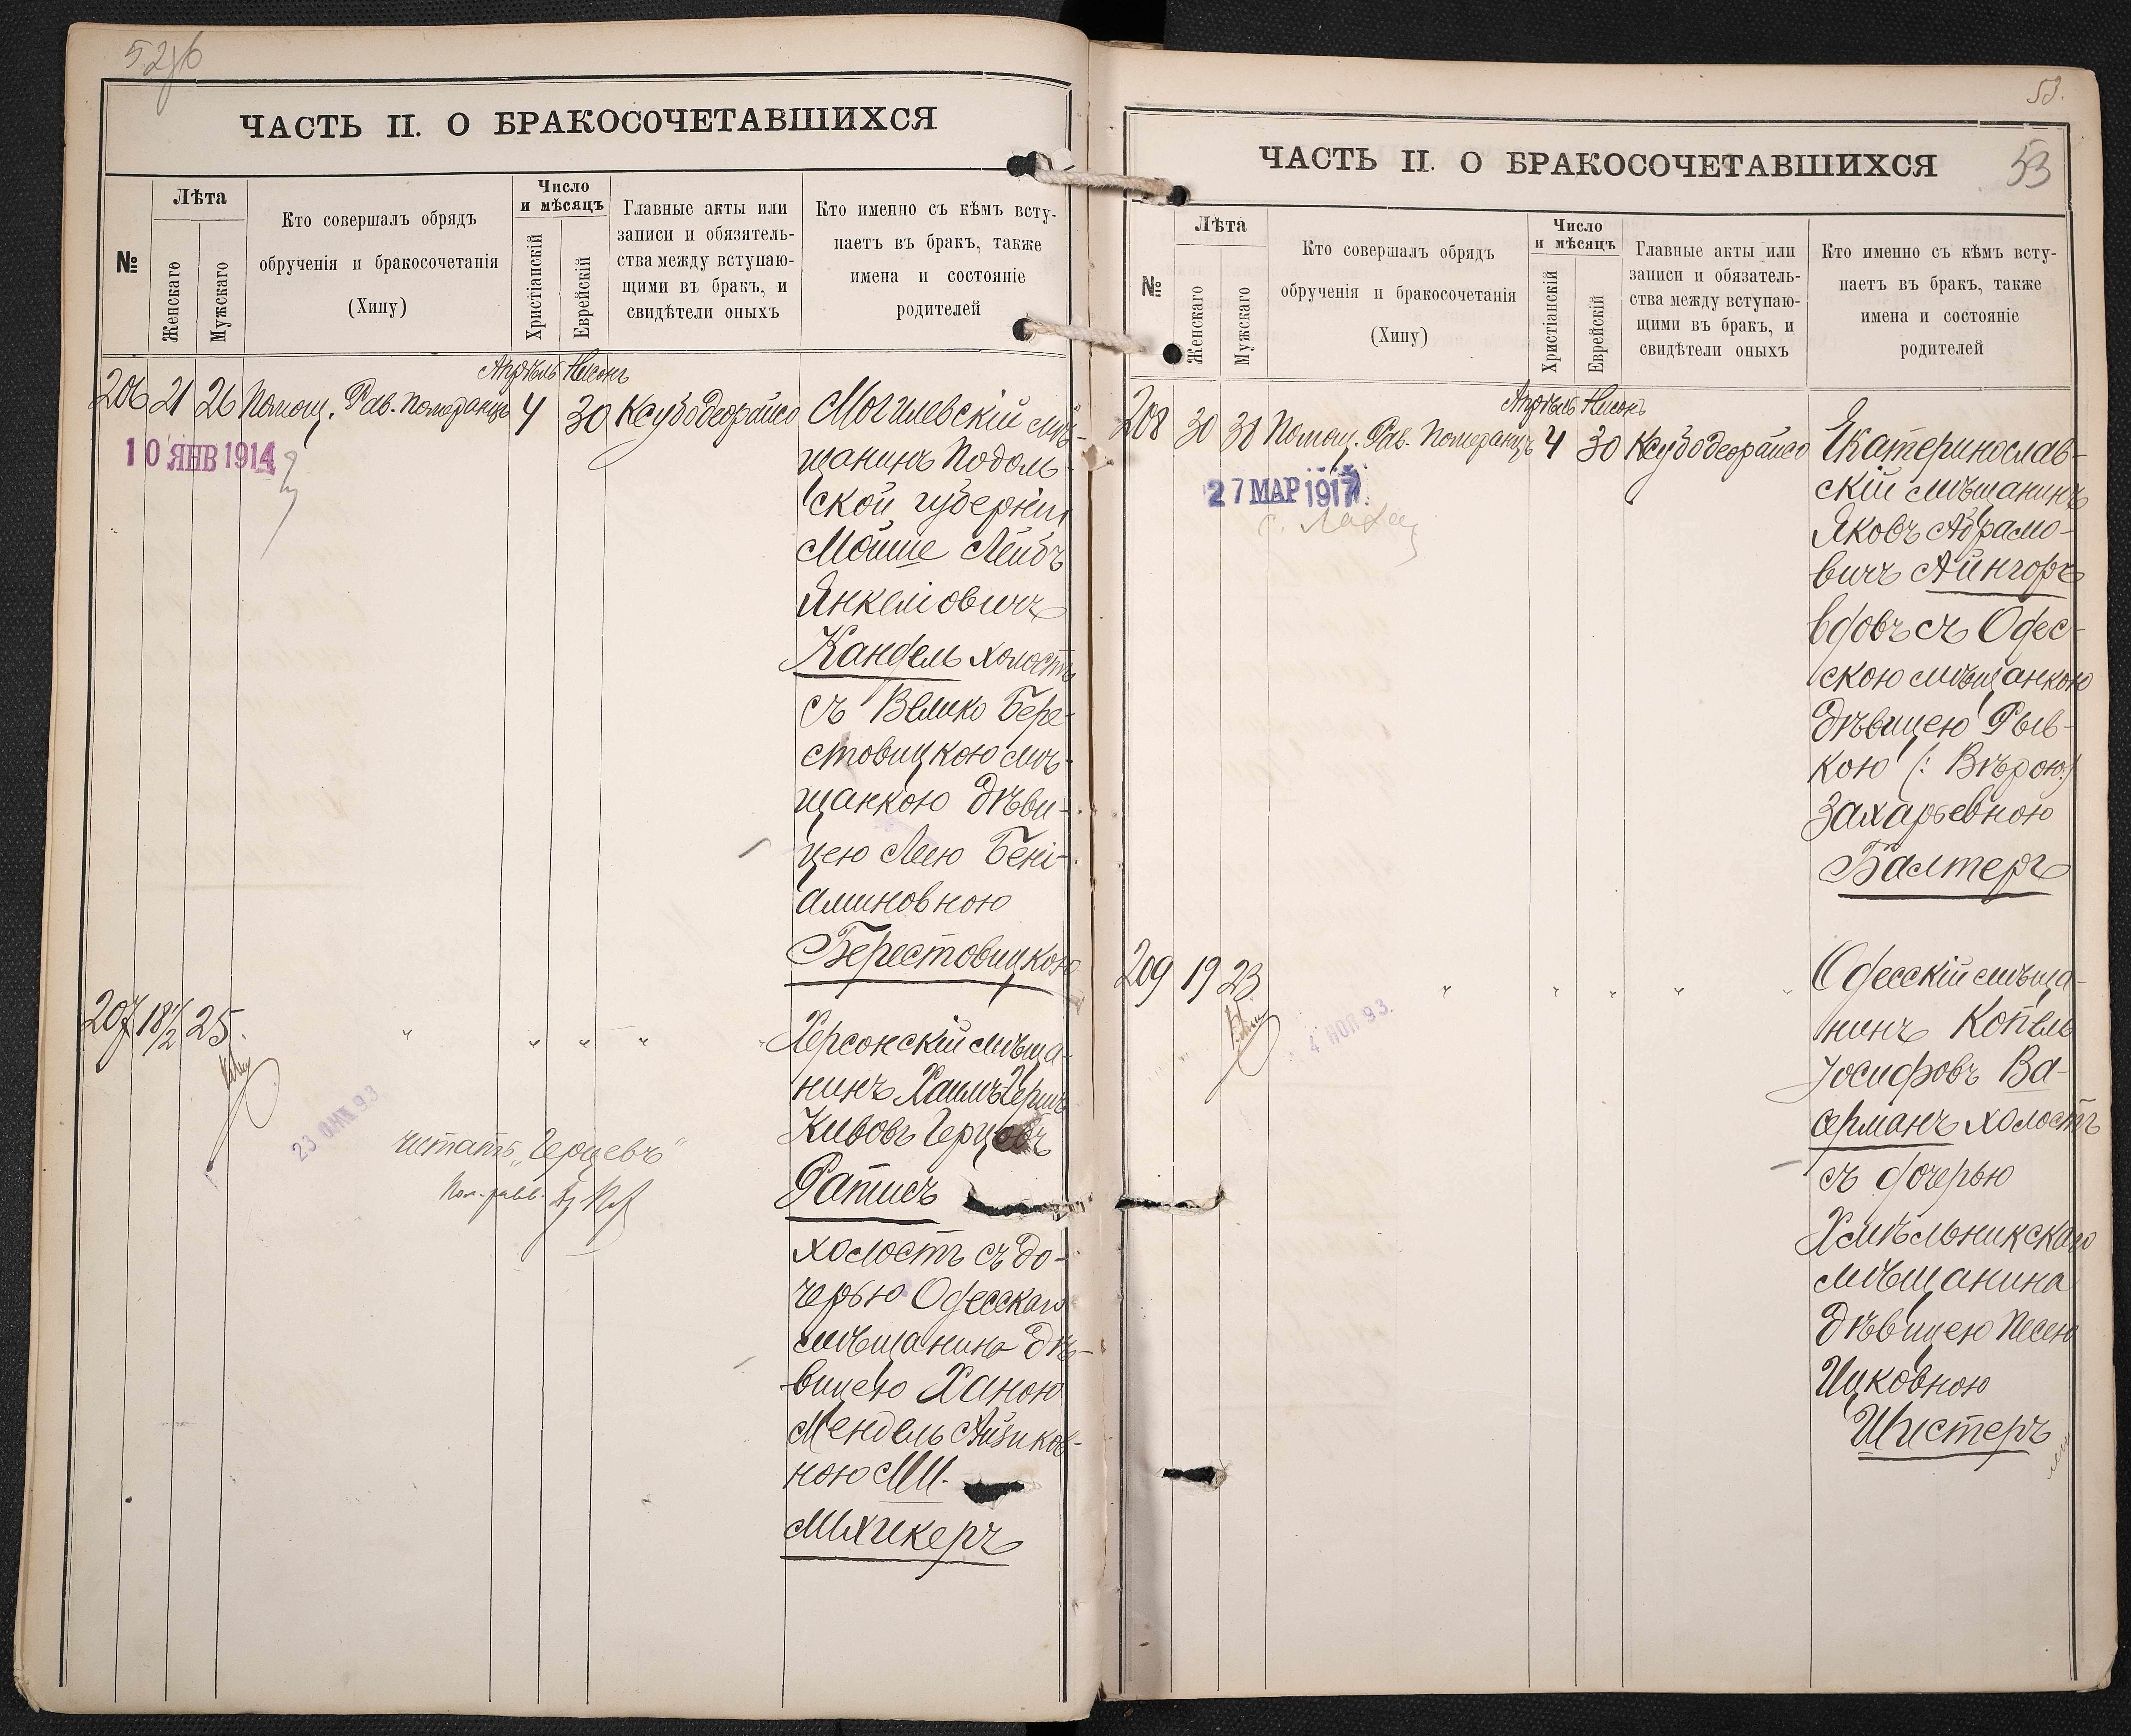 52об
ЧАСТЬ II. О БРАКОСОЧЕТАВШИХСЯ
№
Лѣта
Женскаго
Мужскаго
Кто совершалъ обрядъ
обрученія и бракосочетанія
(Хипу)
Число
и мѣсяцъ
Христіанскій
Еврейскій
Главные акты или
записи и обязятель-
ства между вступаю-
щими въ бракъ, и
свидѣтели оныхъ
Кто именно съ кѣмъ всту-
паетъ въ бракъ, также
имена и состояніе
родителей
Апрѣль Нисонъ
206 21 26 Помощ. Рав. Померанцъ 4 30 Ксубодеорайсо
10 ЯНВ 1914
Могилевскій мѣ-
щанинъ Подоль-
ской губерніи
Мойше Лейбъ
Янкеліовичъ
Кандель холостъ
съ Велико Бере-
стовицкою мѣ-
щанкою дѣви-
цею Леею Бені-
аминовною
Берестовицкою
207 18 1/2 25. " " " "
23 ЯНВ 93
читать „Герцевъ"
Пом. равв.
Херсонскій мѣща-
нинъ Хаимъ Гершъ
Кивовъ Герцовъ
Ратисъ
холостъ съ до-
черью Одесскаго
мѣщанина дѣ-
вицею Ханою
Мендель Айзиков-
ною МИ.
Михикеръ
53.
53
ЧАСТЬ II. О БРАКОСОЧЕТАВШИХСЯ
№
Лѣта
Женскаго
Мужскаго
Кто совершалъ обрядъ
обрученія и бракосочетанія
(Хипу)
Число
и мѣсяцъ
Христіанскій
Еврейскій
Главные акты или
записи и обязатель-
ства между вступаю-
щими въ бракъ, и
свидѣтели оныхъ
Кто именно съ кѣмъ всту-
паетъ въ бракъ, также
имена и состояніе
родителей
Апрѣль Нисонъ
208 30 38 Помощ. Рав. Померанцъ 4 30 Ксубодеорайсо
27 МАР 1917
Екатеринослав-
скій мѣщанинъ
Яковъ Абрамо-
вичъ Айнгоръ
вдовъ съ Одес-
скою мѣщанкою
дѣвицею Рыв-
кою (: Вѣрою:)
Захарьевною
Балтеръ
209 19 23 " " " "
4 НОЯ 93.
Одесскій мѣща-
нинъ Копель
Іосифовъ Ва-
серманъ холостъ
съ дочерью
Хмѣльникскаго
мѣщанина
дѣвицею Песею
Ицковною
Шистеръ